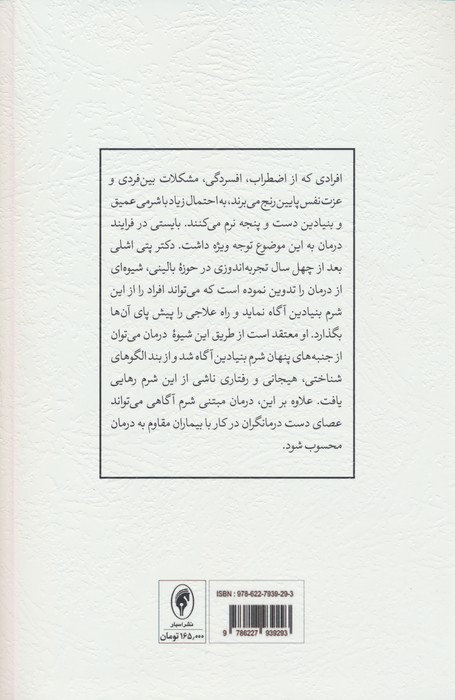 افرادی که از اضطراب، افسردگی، مشکلات بین‌فردی و
عزت‌نفس پایین رنج می‌برند، به احتمال زیاد با شرمی عمیق
و بنیادین دست و پنجه نرم می‌کنند. بایستی در فرایند
درمان به این موضوع توجه ویژه داشت. دکتر پتی اشلی
بعد از چهل سال تجربه‌اندوزی در حوزهٔ بالینی، شیوه‌ای
از درمان را تدوین نموده است که می‌تواند افراد را از این
شرم بنیادین آگاه نماید و راه علاجی را پیش پای آن‌ها
بگذارد. او معتقد است از طریق این شیوهٔ درمان می‌توان
از جنبه‌های پنهان شرم بنیادین آگاه شد و از بند الگوهای
شناختی، هیجانی و رفتاری ناشی از این شرم رهایی
یافت. علاوه بر این، درمان مبتنی شرم آگاهی می‌تواند
عصای دست درمانگران در کار با بیماران مقاوم به درمان
محسوب شود.
نشر اسبار
۱۶۵,۰۰۰ تومان
ISBN : 978-622-7939-29-3
9 786227 939293